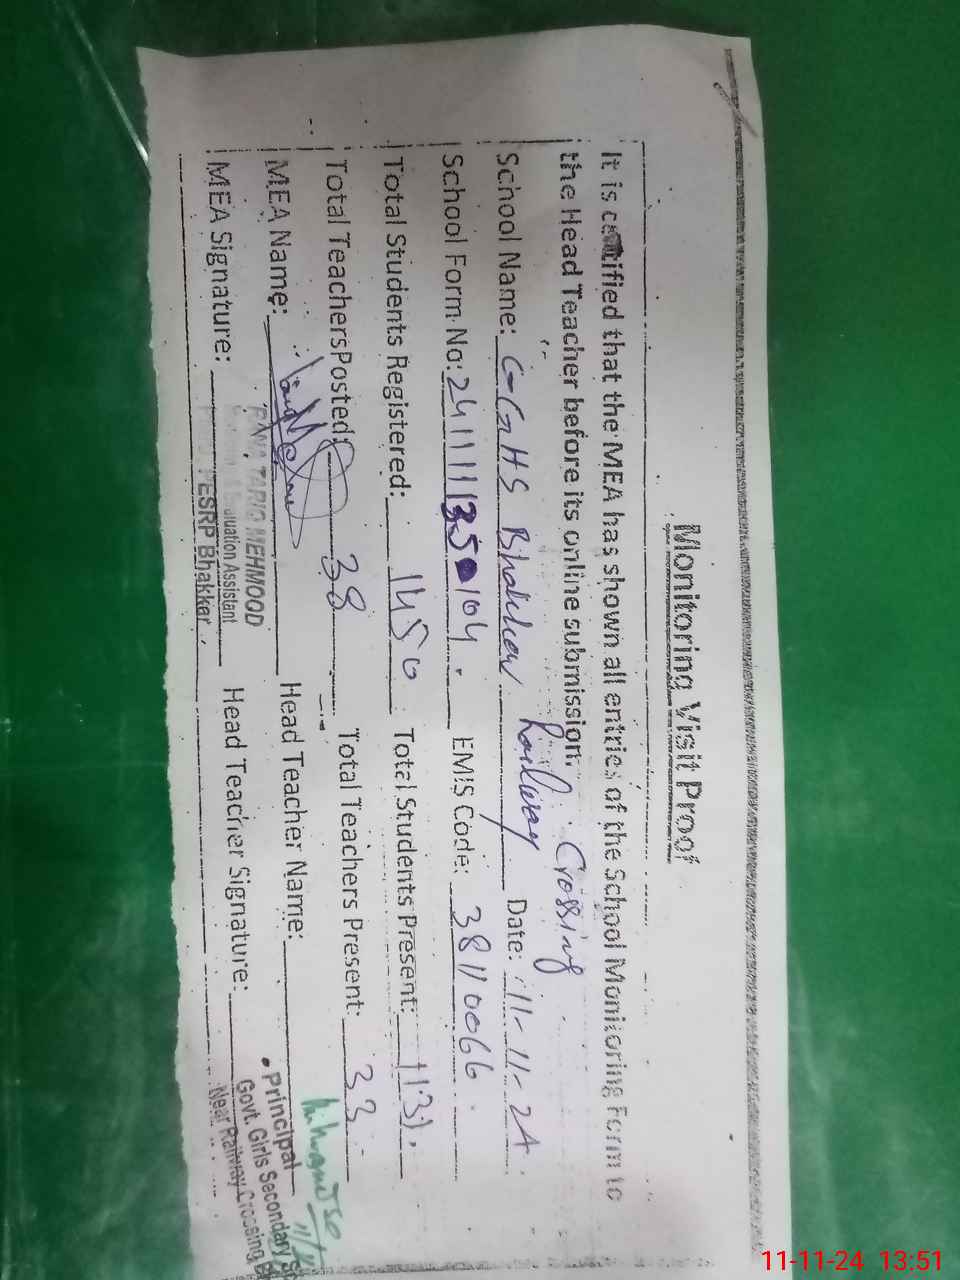 Monitoring Visit Proof
It is certified that the MEA has shown all entries of the School Monitoring Form to
the Head Teacher before its online submission.
School Name: GGHS Bhakkar Railway Crossing Date: 11-11-24
School Form No: 24111135 0104 EMIS Code: 38110066
Total Students Registered: 1450 Total Students Present: 1131
Total TeachersPosted: 38 Total Teachers Present: 33
MEA Name: Head Teacher Name:
MEA Signature: Head Teacher Signature:
RANA TARIQ MEHMOOD
Evaluation Assistant
PESRP Bhakkar
Principal
Govt. Girls Secondary
Near Railway Crossing
11-11-24 13:51